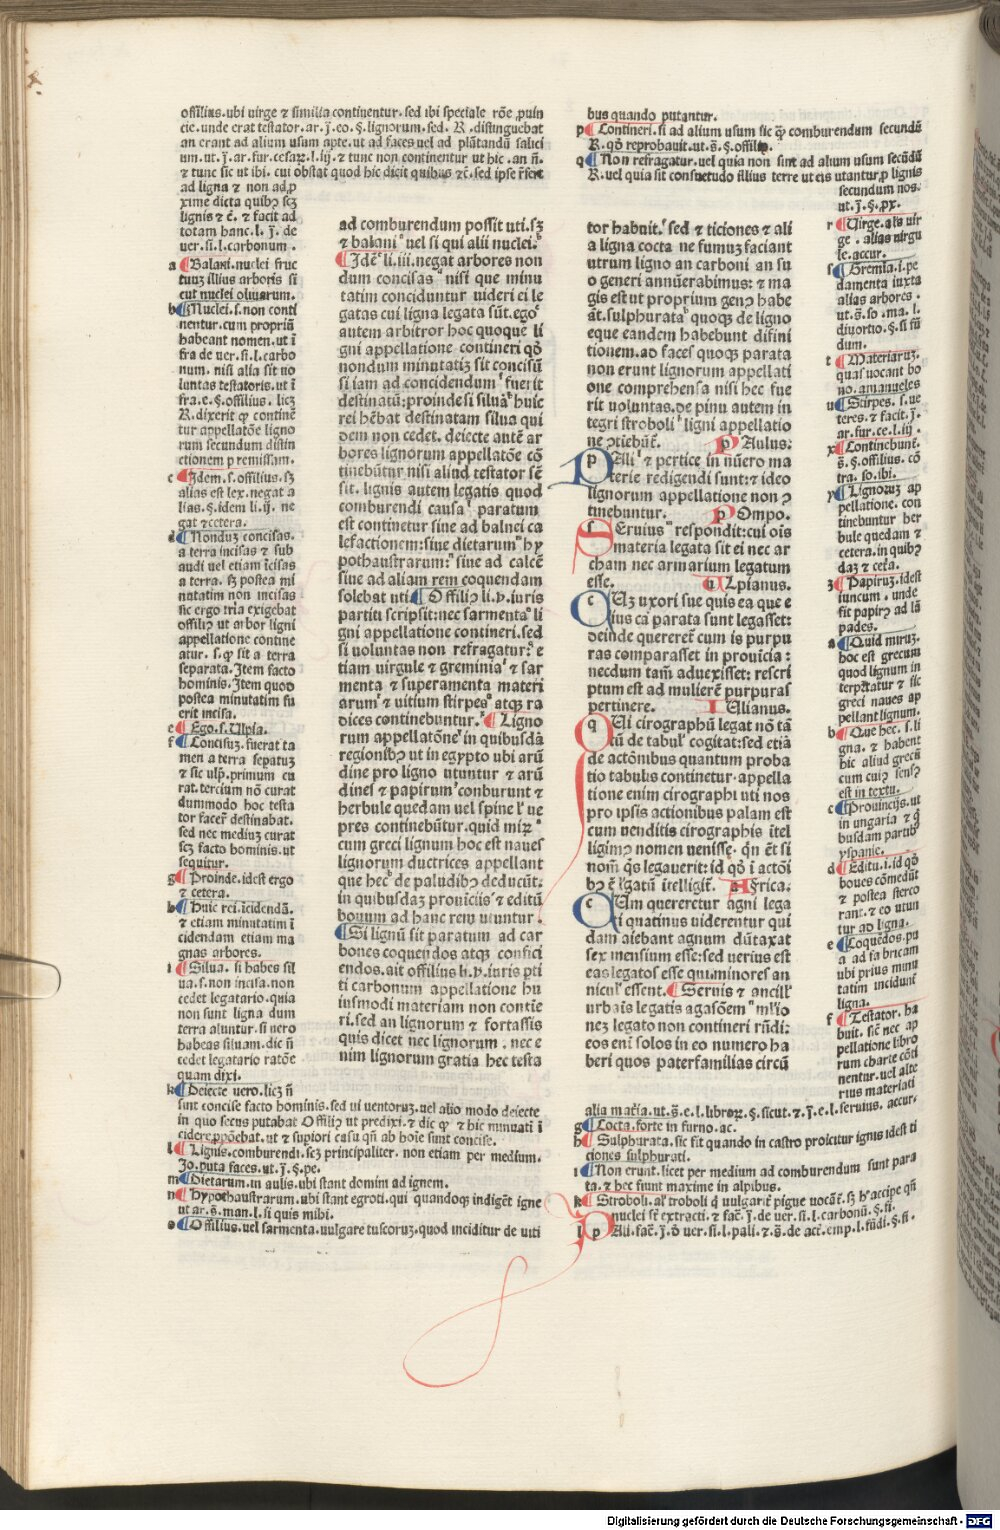 offilius.ubi uirge ⁊ similia continentur.sed ibi speciale rōe ꝓuin
cie.unde erat testator.ar.j̄.eo.§.lignorum.sed. R.distinguebat
an erant ad alium usum apte.ut ad faces uel ad plātandū salici
um.ut.j̄.ar.fur.cesar̄.l.iĳ.⁊ tunc non continentur ut hic.an n̄.
⁊ tunc sic ut ibi.
ad ligna ⁊ non ad ꝓ
xime dicta quibꝰ scꝫ
lignis ⁊ c̄.⁊ facit ad
totam hanc.l.j̄.de
uer.si.l.carbonum.
a Balani.nuclei fruc
tuuꝫ illius arboris si
cut nuclei oliuarum.
b Nuclei.s.non conti
nentur.cum propriū
habeant nomen.ut ī
fra de uer.si.l.carbo
num.nisi alia sit uo
luntas testatoris.ut ī
fra.e.§.offilius.licꝫ
R.dixerit ꝙ continē
tur appellatōe ligno
rum secundum distin
ctionem p remissam.
c Idem.s.offilius.sꝫ
alias est lex.negat a
lias.§.idem li.ĳ.ne
gat ⁊cetera.
d Nonduꝫ concisas.
a terra incisas ⁊ sub
audi uel etiam īcisas
a terra.sꝫ postea mi
nutatim non incisas
sic ergo tria exigebat
offiliꝰ ut arbor ligni
appellatione contine
atur.s.ꝙ sit a terra
separata.Item facto
hominis.Item quod
postea minutatim fu
erit incisa.
e Ego.s.Ulpia.
f Concisuꝫ.fuerat ta
men a terra sepatuꝫ
⁊ sic ulꝑ.primum cu
rat.tercium nō curat
dummodo hoc testa
tor facer̄ destinabat.
sed nec mediuꝫ curat
scꝫ facto hominis.ut
sequitur.
g Proinde.idest ergo
⁊ cetera.
h Huic rei.īcidendā.
⁊ etiam minutatim ī
cidendam etiam ma
gnas arbores.
i Silua.si habes sil
ua.s.non incisa.non
cedet legatario.quia
non sunt ligna dum
terra aluntur.si uero
habeas siluam.dic n̄
cedet legatario ratōe
quam dixi.
k Deiecte uero.licꝫ n̄
sunt concise facto hominis.sed ui uentoruꝫ.uel alio modo deiecte
in quo secus putabat Offiliꝰ ut predixi.⁊ dic ꝙ ⁊ hic minuati ī
cidere
l Lignis.comburendi.scꝫ principaliter.non etiam per medium.
Jo.puta faces.ut.j̄.§.pe.
m Dietarum.in aulis.ubi stant domim ad ignem.
n Hypothaustrarum.ubi stant egroti.qui quandoqꝫ indigēt igne
ut ar.s̄.man.l.si quis mihi.
o Offilius.uel sarmenta.uulgare tuscoruꝫ.quod inciditur de uiti
ad comburendum possit uti.sꝫ
⁊ balani uel si qui alii nuclei.
Idē li.iii.negat arbores non
dum concisas nisi que minu
tatim conciduntur uideri ei le
gatas cui ligna legata sūt.ego
autem arbitror hoc quoque li
gni appellatione contineri qō
nondum minutatiꝫ sit concisū
si iam ad concidendum fuerit
destinatū:proinde si siluā huic
rei hēbat destinatam silua qui
dem non cedet.deiecte antē ar
bores lignorum appellatōe cō
tinebūtur nisi aliud testator sē
sit.lignis autem legatis quod
comburendi causa paratum
est continetur siue ad balnei ca
lefactionem:siue dietarum hy
pothaustrarum:siue ad calcē
siue ad aliam rem coquendam
solebat uti Offiliꝰ li.v.iuris
partiti scripsit:nec sarmenta li
gni appellatione contineri.sed
si uoluntas non refragatur:e
tiam uirgule ⁊ greminia ⁊ sar
menta ⁊ superamenta materi
arum ⁊ uitium stirpes atqꝫ ra
dices continebuntur. Ligno
rum appellatōne in quibusdā
regionibꝰ ut in egypto ubi arū
dine pro ligno utuntur ⁊ arū
dines ⁊ papirum conburunt ⁊
herbule quedam uel spine l ue
pres continebūtur.quid mirꝫ
cum greci lignum hoc est naues
lignorum ductrices appellant
que hec de paludibꝰ deducūt:
in quibusdaꝫ prouīciis ⁊ editū
bouum ad hanc rem utuntur.
Si lignū sit paratum ad car
bones coquendos atqꝫ confici
endos.ait offilius li.v.iuris pti
ti carbonum appellatione hu
iusmodi materiam non contie
ri.sed an lignorum ⁊ fortassis
quis dicet nec lignorum.nec e
nim lignorum gratia hec testa
bus quando putantur.
p Contineri.si ad alium usum sic ꝙ comburendum secundū
R.qō reprobauit.ut.s̄.§.offiliꝰ.
q Non refragatur.uel quia non sint ad alium usum secūdū
R.uel quia sit consuetudo illius terre ut eis utantur p lignis
secundum nos.
ut.j̄.§.px.
r Uirge.al's uir
ge.alias uirgu
le.accur.
s Gremia.i.pe
damenta iuxta
alias arbores.
ut.s̄.so.ma.l.
diuortio.§.si fū
dum.
t Materiaruꝫ.
quas uocant bo
no.amanueles
u Stirpes.s.ue
teres.⁊ facit.j̄.
ar.fur.ce.l.iĳ.
x Continebunt.
s̄.§.offilius.cō
tra.so.ibi.
y Lignoruꝫ ap
pellatione.con
tinebuntur her
bule quedam ⁊
cetera.in quibꝰ
daꝫ ⁊ cet̄a.
z Papiruꝫ.idest
iuncum.unde
fit papirꝰ ad lā
pades.
a Quid miruꝫ.
hoc est grecum
quod lignum in
terp̄tatur ⁊ sic
greci naues ap
pellant lignum.
b Que hec.s.li
gna.⁊ habent
hic aliud grecū
cum cuiꝰ sensꝰ
est in textu.
c Prouincijs.ut
in ungaria ⁊ q̄
busdam partibꝰ
yspanie.
d Editu.i.id qō
boues comedūt
⁊ postea sterco
rant.⁊ eo utun
tur ad ligna.
e Coquēdos.pu
a ad fabricam
ubi prius minu
tatim incidunt
ligna.
f Testator.ha
buit.sic̄ nec ap
pellatione libro
rum charte cōti
nentur.uel alte
rius materiati
alia mat̄ia.ut.s̄.e.l.libroꝝ.§.sicut.⁊.j̄.e.l.seruius.accur.
g Cocta.forte in furno.ac.
h Sulphurata.sic fit quando in castro proicitur ignis idest ti
ciones sulphurati.
i Non erunt.licet per medium ad comburendum sunt para
ta.⁊ hec fiunt maxime in alpibus.
k Stroboli.al' troboli q̄ uulgarit̄ pigue uocāt̄.sꝫ h'accipe qn̄
nuclei sr̄ extracti.⁊ fac̄.j̄.de uer.si.l.carbonū.§.fi.
l Pali.fac̄.j̄.d̄ uer.si.l.pali.⁊.s̄.de act̄.emp.l.fūdi.§.fi.
tor habuit.sed ⁊ ticiones ⁊ ali
a ligna cocta ne fumuꝫ faciant
utrum ligno an carboni an su
o generi annūerabimus:⁊ ma
gis est ut proprium genꝰ habe
āt.sulphurata quoqꝫ de ligno
eque eandem habebunt difini
tionem.ad faces quoqꝫ parata
non erunt lignorum appellati
one comprehensa nisi hec fue
rit uoluntas.de pinu autem in
tegri stroboli ligni appellatio
ne ꝯtiebūt̄. Paulus.
Pali ⁊ pertice in nūero ma
terie redigendi sunt:⁊ ideo
lignorum appellatione non ꝯ
tinebuntur. Pompo.
Seruius respondit:cui ois
materia legata sit ei nec ar
cham nec armarium legatum
esse. Ulpianus.
Cuꝫ uxori sue quis ea que e
ius cā parata sunt legasset:
deinde quereret cum is purpu
ras comparasset in prouīcia:
necdum tam aduexisset:rescri
ptum est ad mulierē purpuras
pertinere. Iulianus.
Qui cirographū legat nō tā
tū de tabul' cogitat:sed etiā
de actōnibus quantum proba
tio tabulis continetur.appella
tione enim cirographi uti nos
pro ipsis actionibus palam est
cum uenditis cirographis ītel
ligimꝰ nomen uenisse.qn̄ ēt si
nom̄ q̄s legauerit:id qō ī actōi
bꝰ ē l̄gatū ītelligit̄. Africa.
Cum quereretur agni lega
ti quatinus uiderentur qui
dam aiebant agnum dūtaxat
sex mensium esse:sed uerius est
eas legatos esse qui minores an
nicul' essent. Seruis ⁊ ancill'
urbais legatis agasōem ml'io
neꝫ legato non contineri rn̄di:
eos eni solos in eo numero ha
beri quos paterfamilias circū
Digitalisierung gefördert durch die Deutsche Forschungsgemeinschaft - DFG